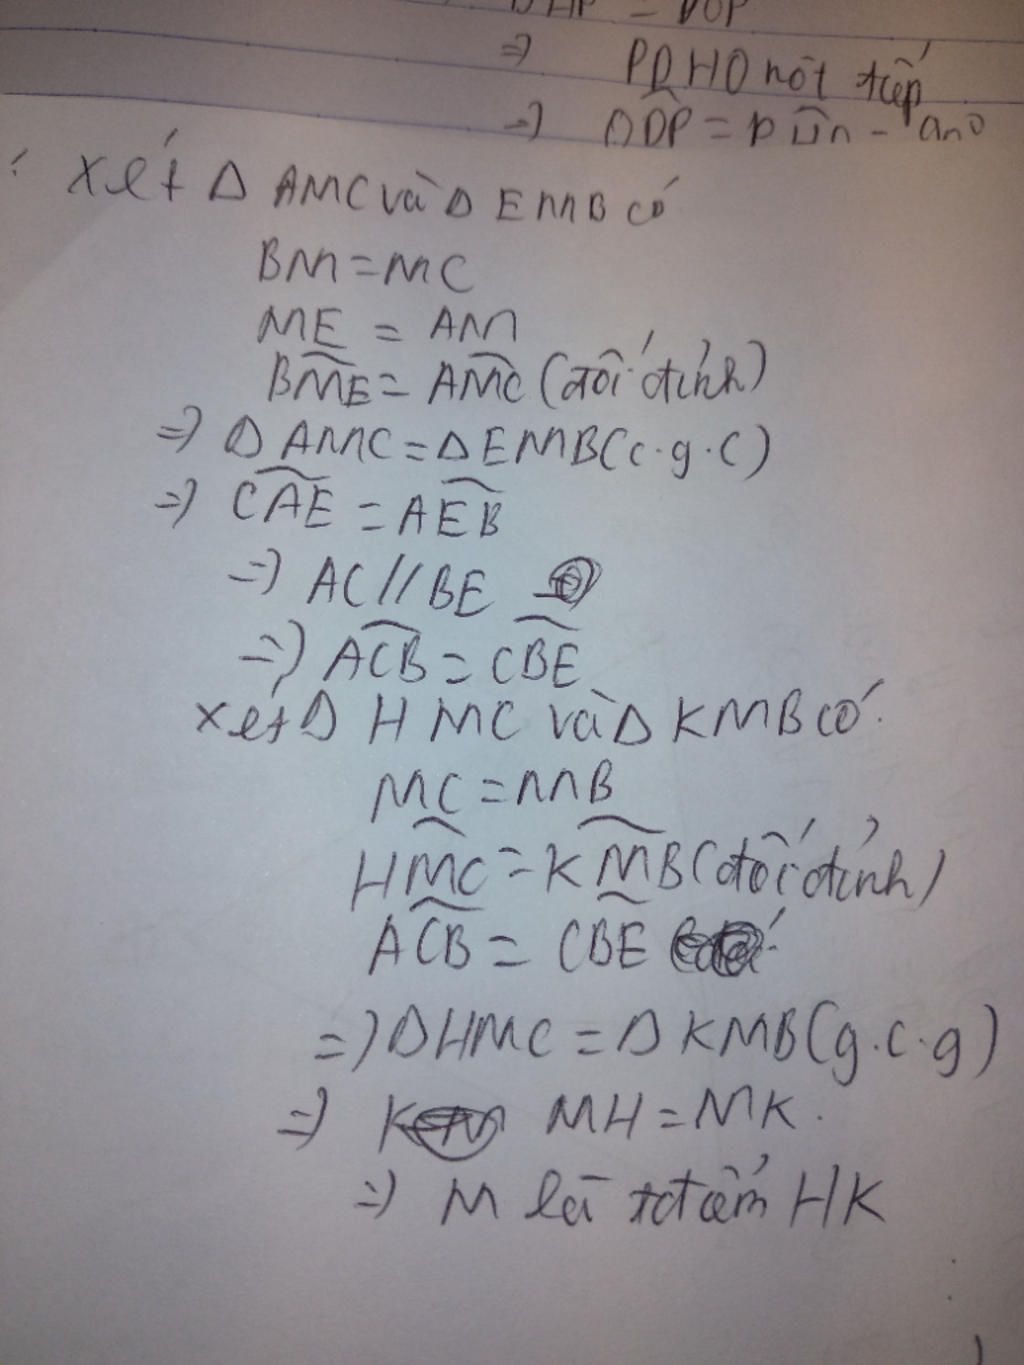 => PDHO nột tiếp
=> ODP =
Xét Δ AMC và Δ EMB có
BM = MC
ME = AM
BME = AMC (đối đỉnh)
=> Δ AMC = Δ EMB (c.g.c)
=> CAE = AEB
=> AC // BE
=> ACB = CBE
xét Δ HMC và Δ KMB có
MC = MB
HMC = KMB (đối đỉnh)
ACB = CBE
=> Δ HMC = Δ KMB (g.c.g)
=> MH = MK.
=> M là HK